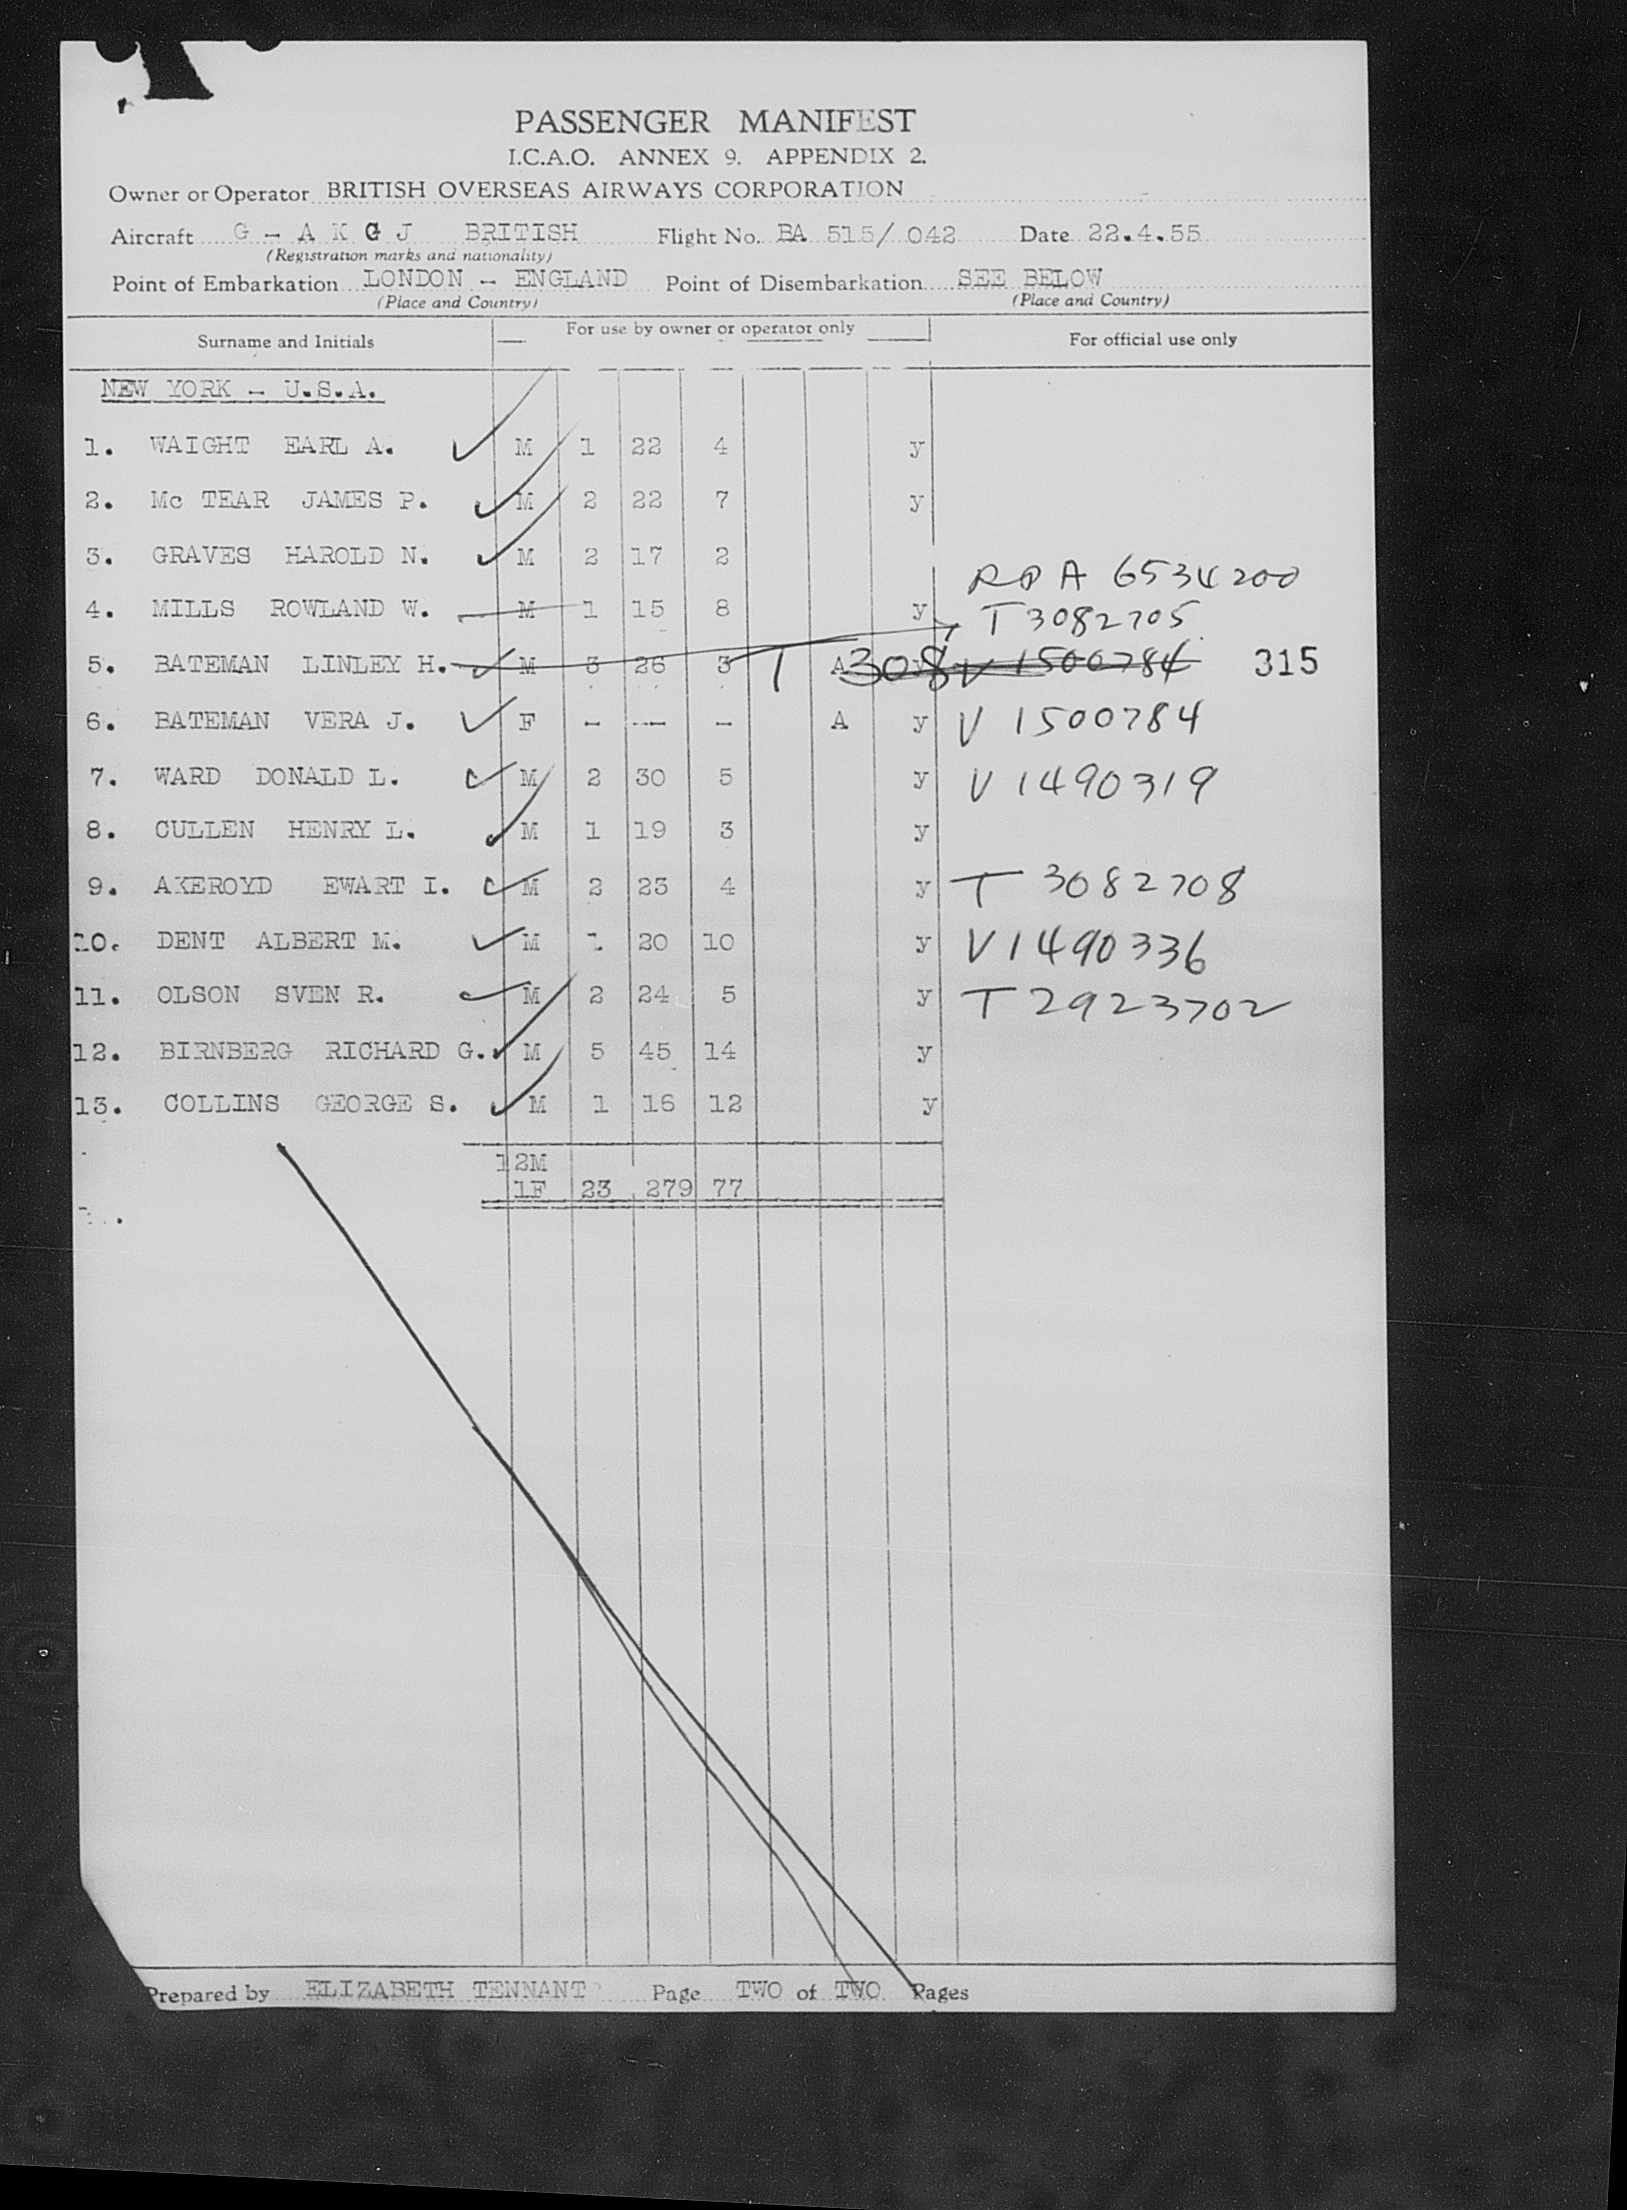 PASSENGER MANIFEST
I.C.A.O. ANNEX 9. APPENDIX 2.
Owner or Operator BRITISH OVERSEAS AIRWAYS CORPORATION
Aircraft G - A K G J BRITISH Flight No. BA 515/ 042 Date 22.4.55
(Registration marks and nationality)
Point of Embarkation LONDON - ENGLAND Point of Disembarkation SEE BELOW
(Place and Country) (Place and Country)
Surname and Initials For use by owner or operator only For official use only
NEW YORK - U.S.A.
1. WAIGHT EARL A. M 1 22 4 y
2. Mc TEAR JAMES P. M 2 22 7 y
3. GRAVES HAROLD N. M 2 17 2
A 6534200
4. MILLS ROWLAND W. M 1 15 8 y T 3082705
5. BATEMAN LINLEY H. M 3 26 3 T A 308 y V 1500784 315
6. BATEMAN VERA J. F - -- - A y V 1500784
7. WARD DONALD L. M 2 30 5 y V 1490319
8. CULLEN HENRY L. M 1 19 3 y
9. AKEROYD EWART I. M 2 23 4 y T 3082708
10. DENT ALBERT M. M 1 20 10 y V 1490336
11. OLSON SVEN R. M 2 24 5 y T 2923702
12. BIRNBERG RICHARD G. M 5 45 14 y
13. COLLINS GEORGE S. M 1 16 12 y
12M
1F 23 279 77
Prepared by ELIZABETH TENNANT Page TWO of TWO Pages